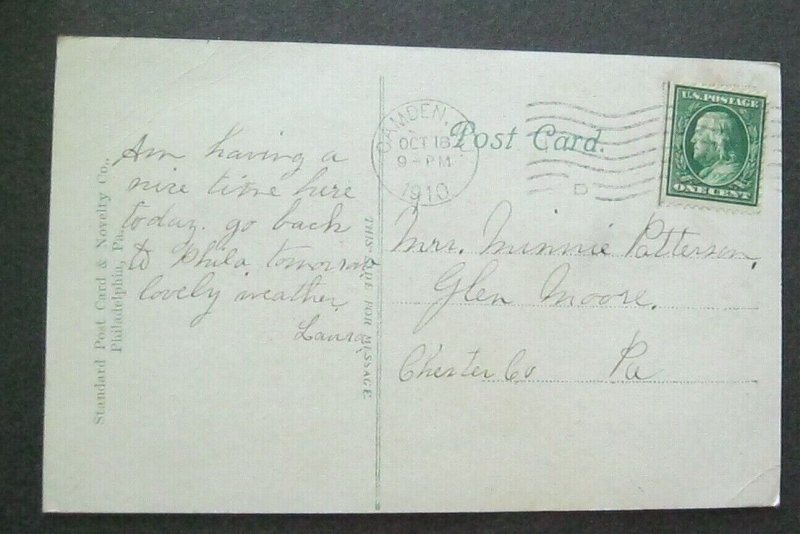 Standard Post Card & Novelty Co.,
Philadelphia, Pa.
Am having a
nice time here
today. go back
to Phila tomorrow
lovely weather
Laura
THIS SIDE FOR MESSAGE
CAMDEN,
OCT 16
9-PM
1910
D
Post Card.
U.S. POSTAGE
ONE CENT
Mrs. Minnie Patterson,
Glen Moore.
Chester Co Pa